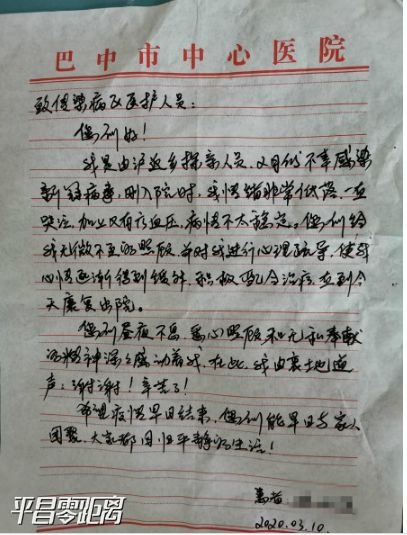 巴中市中心医院
致传染病区医护人员：
您们好！
我是由沪返乡探亲人员，2月份不幸感染
新冠病毒，刚入院时，我情绪非常低落，一直
哭泣，加上又有高血压，病情不太稳定。您们给
我无微不至的照顾，并对我进行心理疏导，使我
心情逐渐得到缓解，积极配合治疗，直到今
天康复出院。
您们昼夜不息、悉心照顾和无私奉献
的精神深深感动着我，在此，我由衷地道
声：谢谢！辛苦了！
希望疫情早日结束，您们能早日与家人
团聚，大家都回归平静的生活！
患者
2020.03.10
平昌零距离